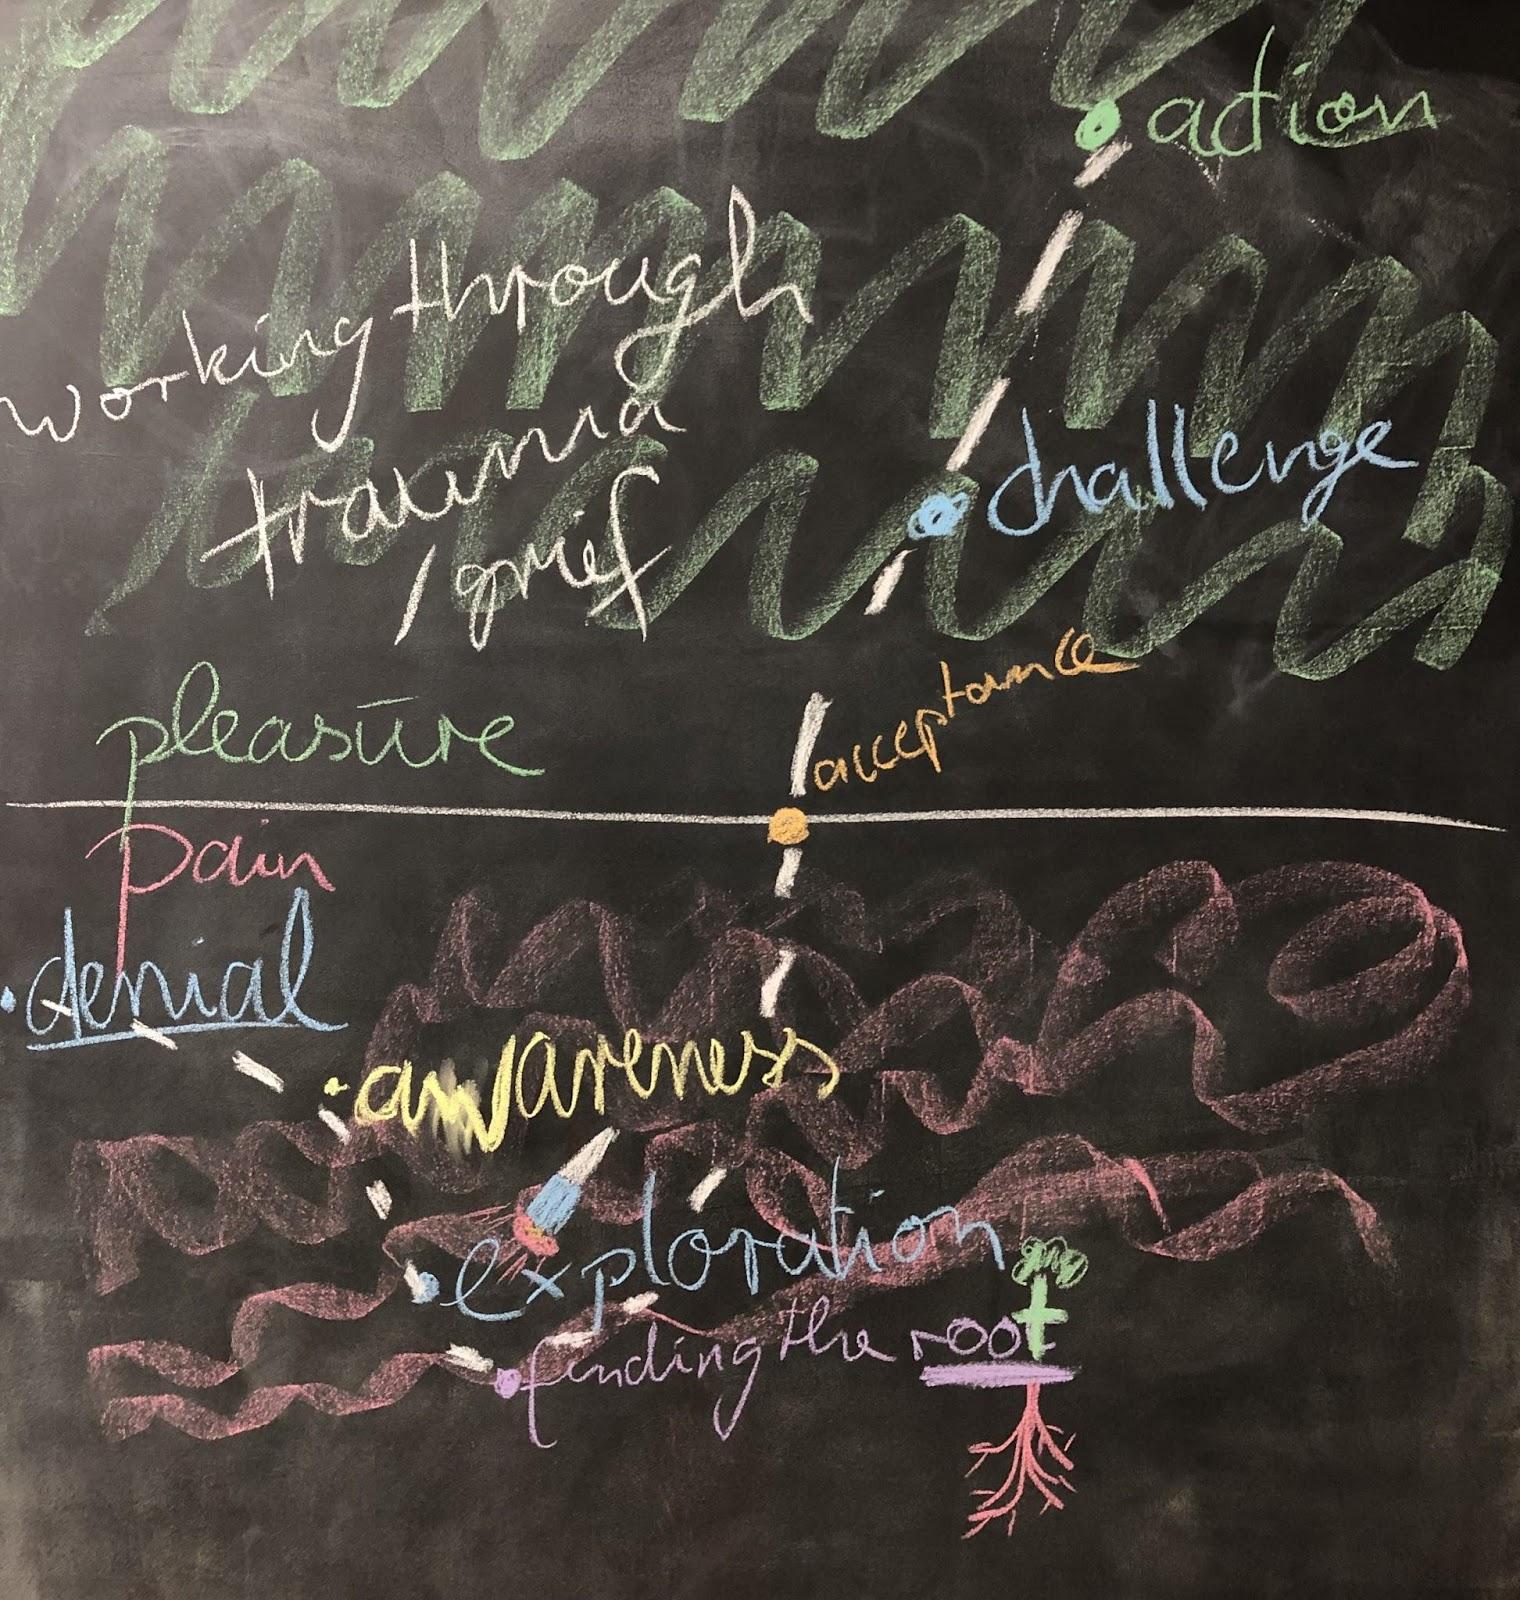 action
working through
trauma
/grief
challenge
acceptance
pleasure
pain
denial
awareness
exploration
finding the root